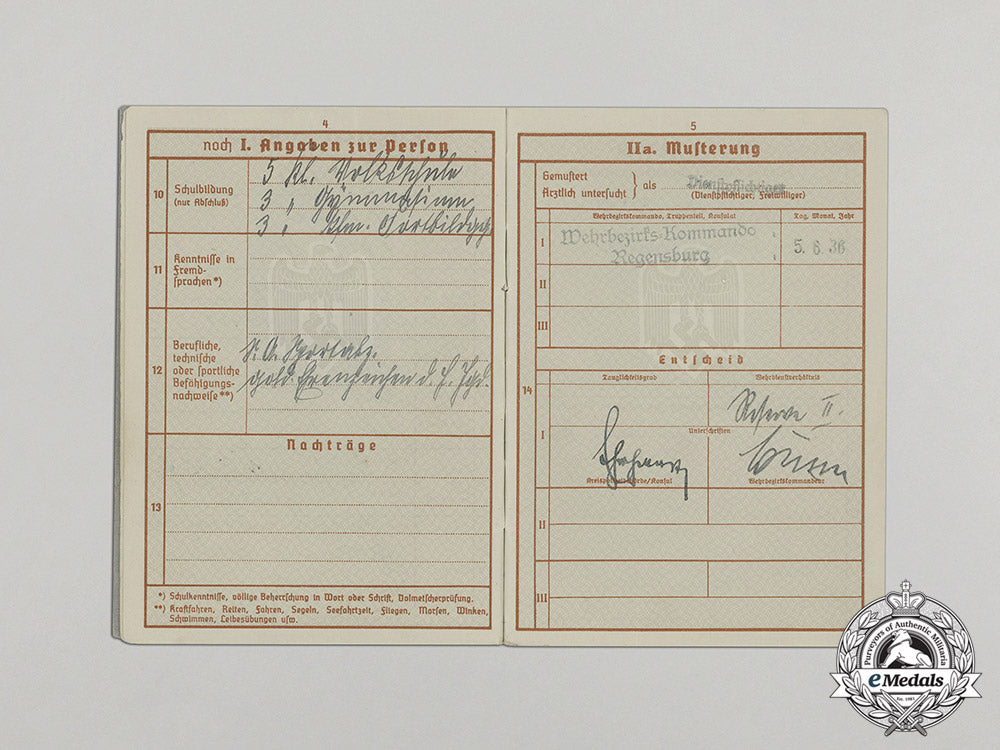 4
noch I. Angaben zur Person
10
Schulbildung
(nur Abschluß)
5 Kl. Volksschule
3 " Gymnasium
3 "
11
Kenntnisse in
Fremd-
sprachen*)
12
Berufliche,
technische
oder sportliche
Befähigungs-
nachweise**)
S.A. Sportabz.
gold. Ehrenzeichen d. H. Jgd.
Nachträge
13
*) Schulkenntnisse, völlige Beherrschung in Wort oder Schrift, Dolmetscherprüfung.
**) Kraftfahren, Reiten, Fahren, Segeln, Seefahrtzeit, Fliegen, Morsen, Winken,
Schwimmen, Leibesübungen usw.
5
IIa. Musterung
Gemustert
Ärztlich untersucht } als
Dienstpflichtiger
(Dienstpflichtiger, Freiwilliger)
Wehrbezirkskommando, Truppenteil, Konsulat
Tag, Monat, Jahr
I
Wehrbezirks-Kommando
Regensburg
5. 6. 36
II
III
Entscheid
14
Tauglichkeitsgrad
Wehrdienstverhältnis
Reserve II.
I
Unterschriften
Kreispolizeibehörde/Konsul
Wehrbezirkskommandeur
II
III
Purveyors of Authentic Militaria
eMedals